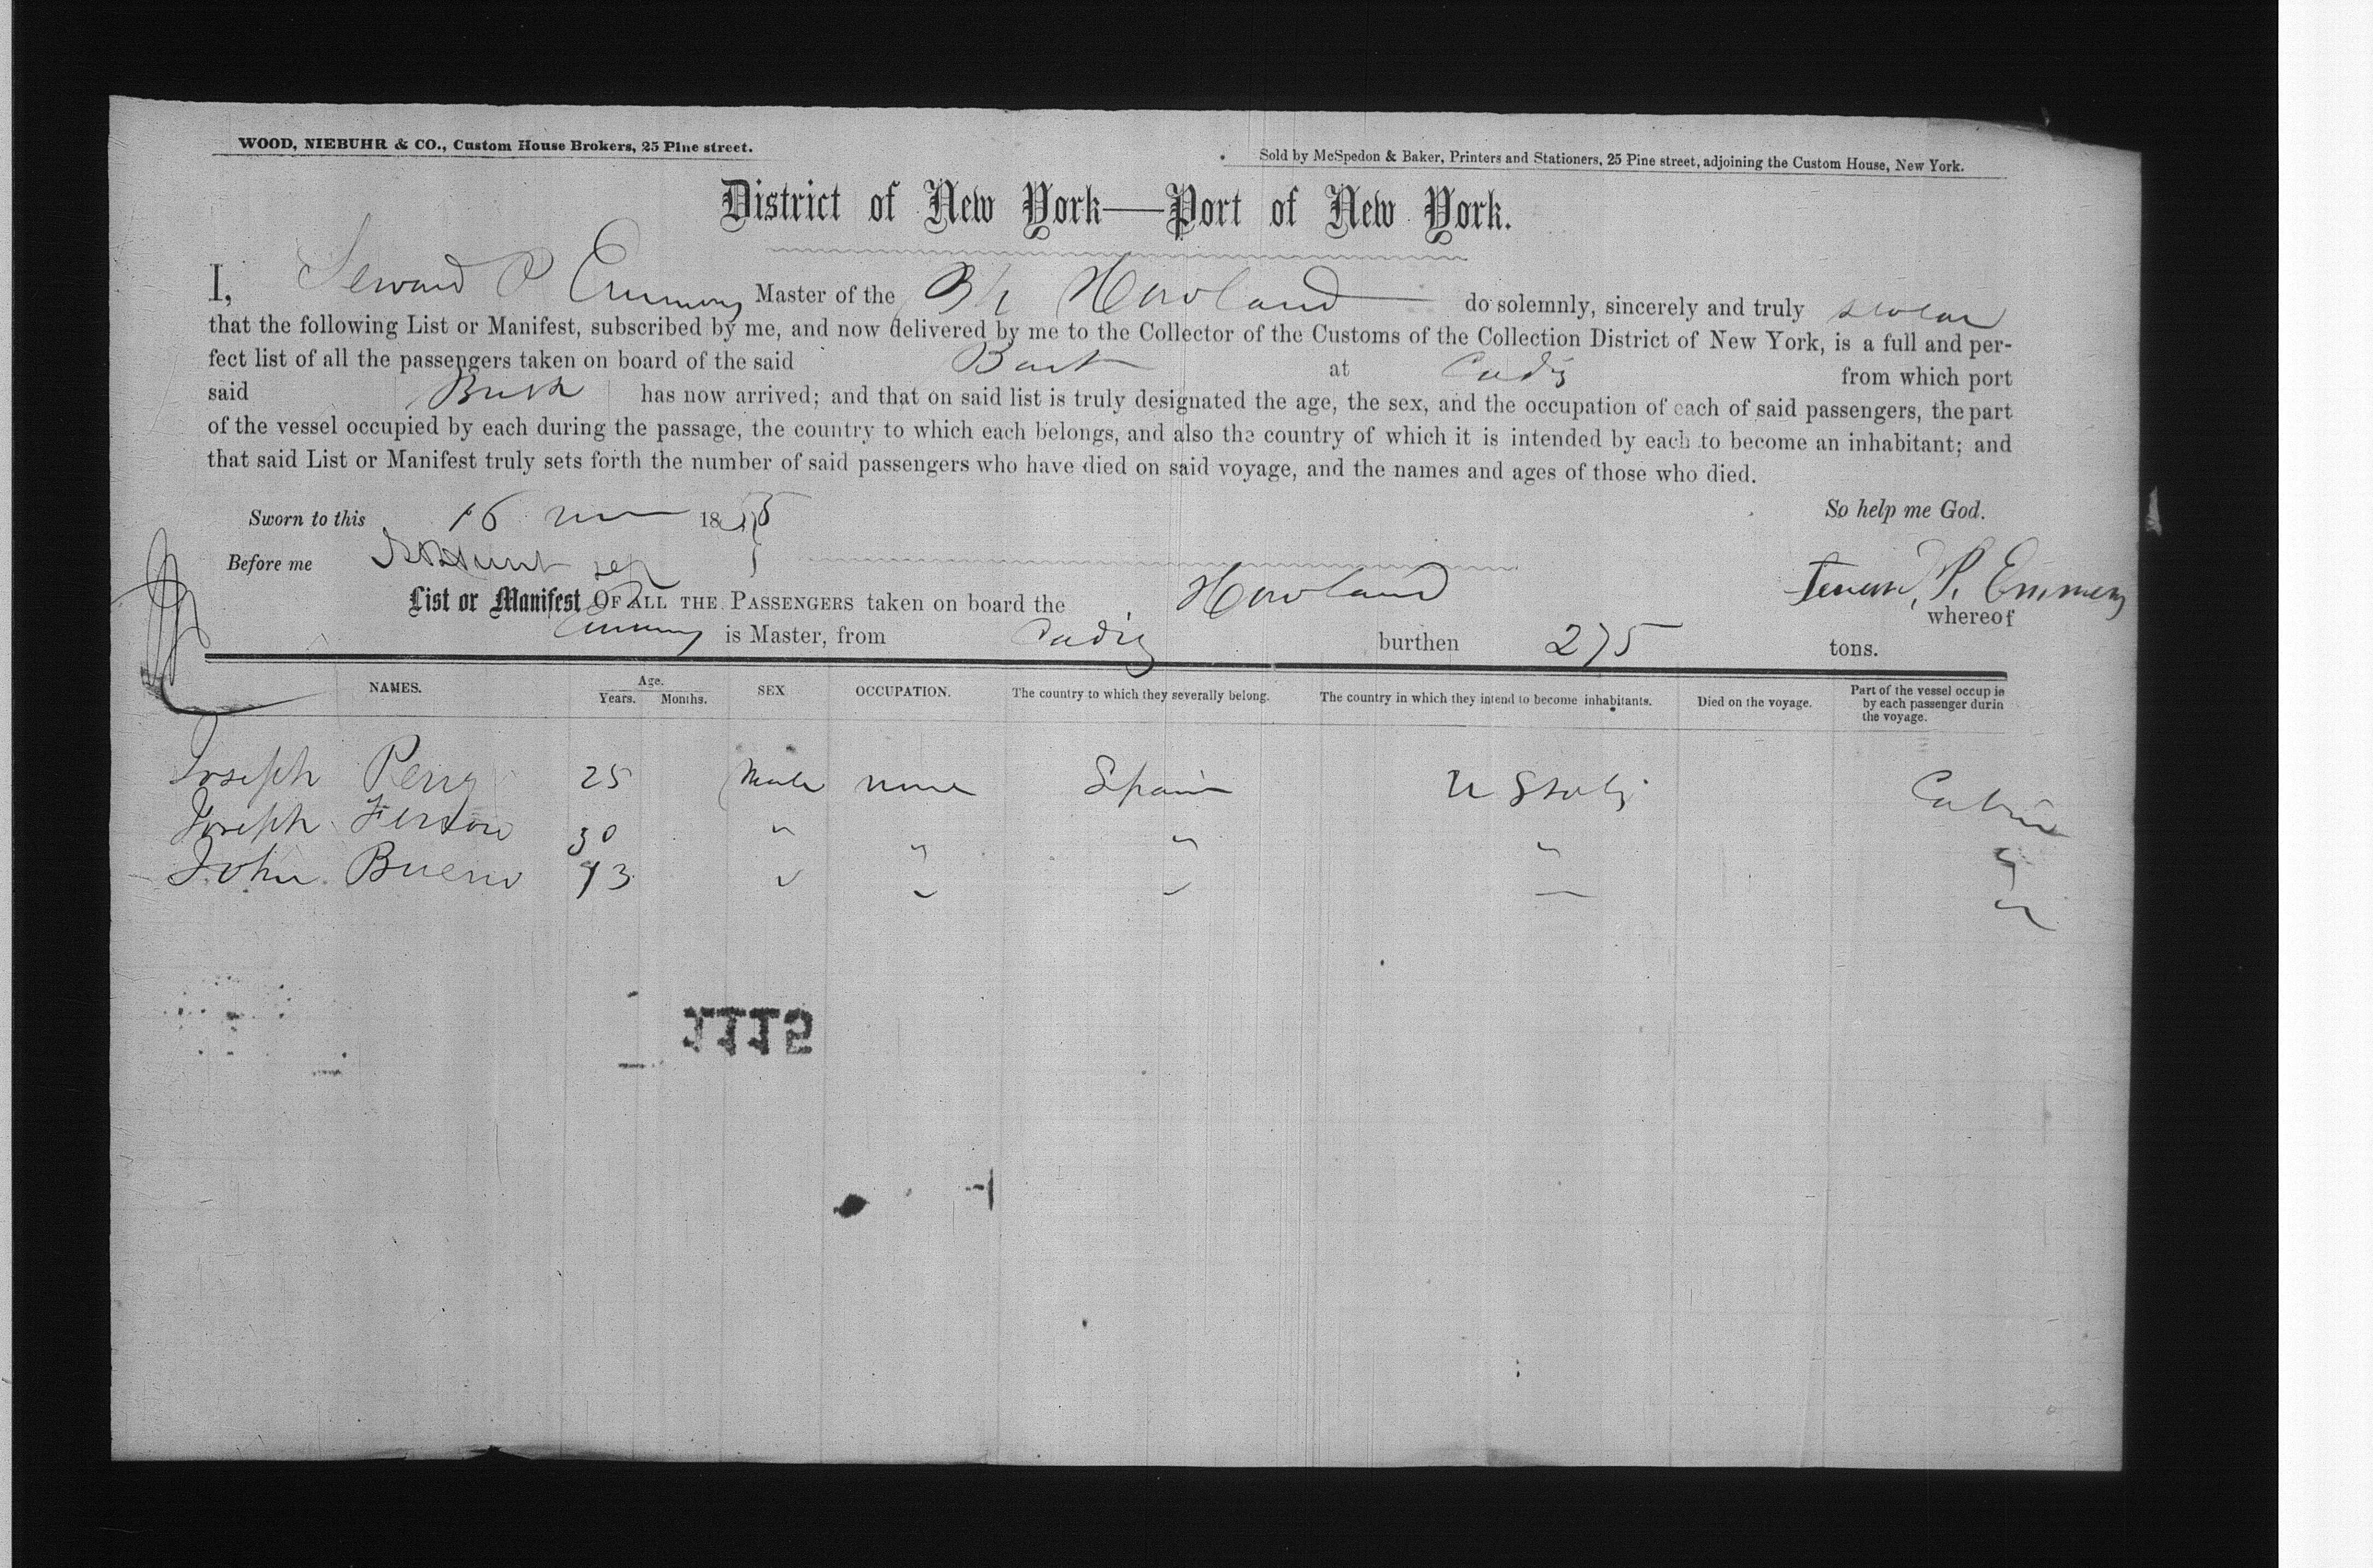 WOOD, NIEBUHR & CO., Custom House Brokers, 25 Pine street.
Sold by McSpedon & Baker, Printers and Stationers, 25 Pine street, adjoining the Custom House, New York.
District of New York—Port of New York.
I, Seward P Emmons Master of the Bk Howland do solemnly, sincerely and truly swear
that the following List or Manifest, subscribed by me, and now delivered by me to the Collector of the Customs of the Collection District of New York, is a full and per-
fect list of all the passengers taken on board of the said Bark at Cadiz from which port
said Bark has now arrived; and that on said list is truly designated the age, the sex, and the occupation of each of said passengers, the part
of the vessel occupied by each during the passage, the country to which each belongs, and also the country of which it is intended by each to become an inhabitant; and
that said List or Manifest truly sets forth the number of said passengers who have died on said voyage, and the names and ages of those who died.
Sworn to this 16 18 So help me God.
Before me
Seward P. Emmons
List or Manifest OF ALL THE PASSENGERS taken on board the Howland whereof
Emmons is Master, from Cadiz burthen 275 tons.
NAMES. Age. Years. Months. SEX OCCUPATION. The country to which they severally belong. The country in which they intend to become inhabitants. Died on the voyage. Part of the vessel occup ie by each passenger durin the voyage.
Joseph Perry 25 Male none Spain U States Cabin
Joseph 30 " " " " "
John Bueno " " " " "